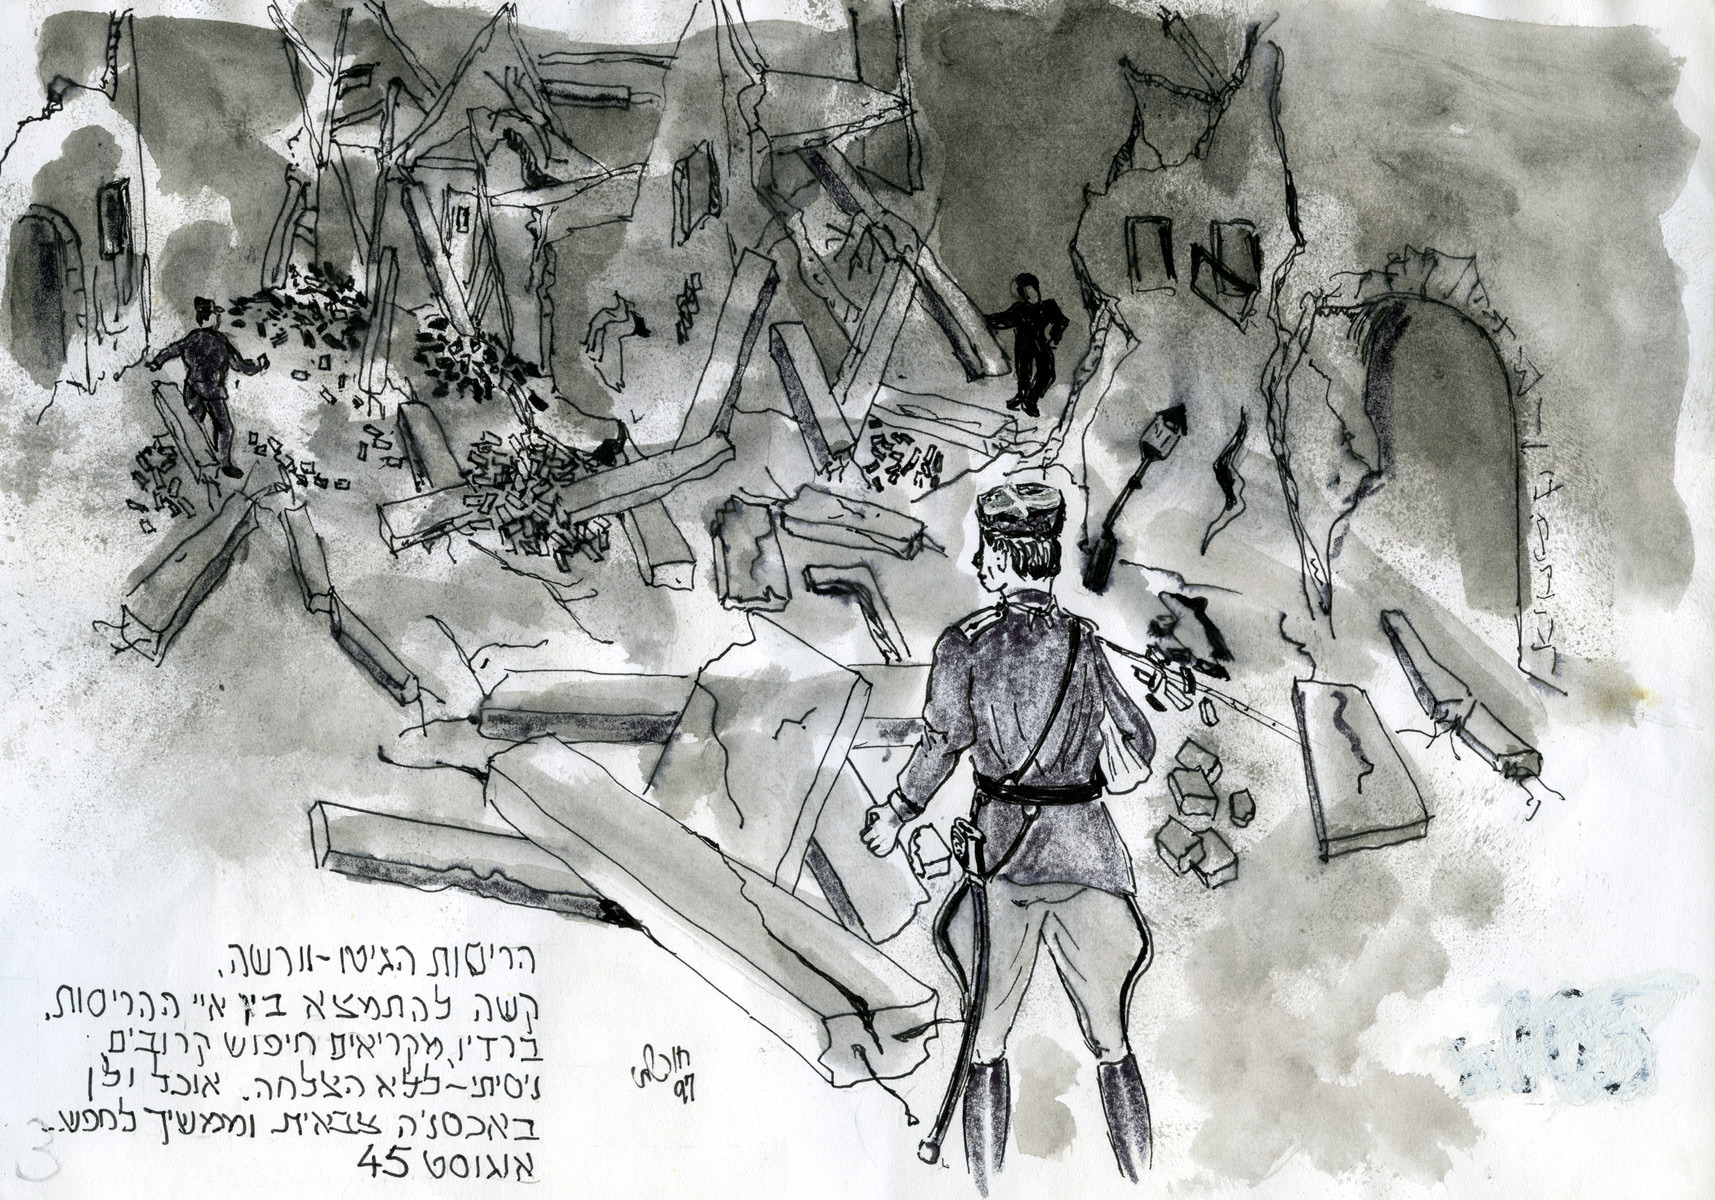 הריסות הגיטו-וורשה.
קשה להתמצא בין איי ההריסות.
ברדיו מקריאים חיפוש קרובים
ניסיתי-ללא הצלחה. אוכל ולן
באכסניה צבאית וממשיך לחפש..
אוגוסט 45
97
3